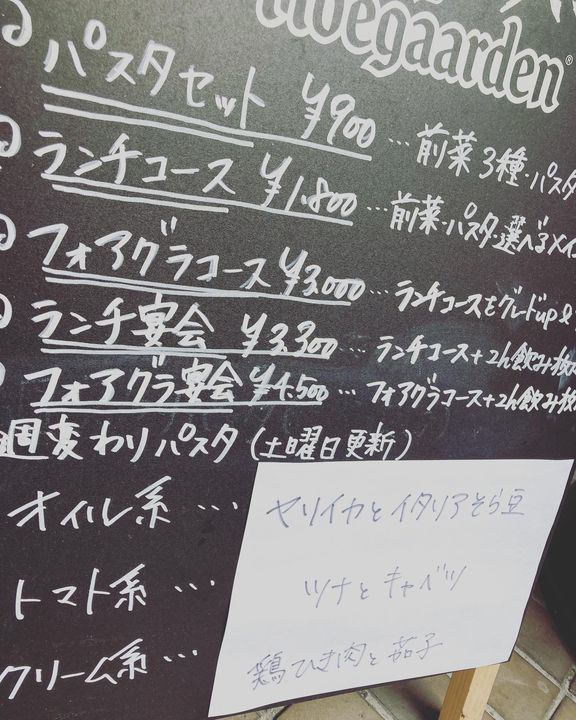 Hoegaarden
パスタセット ¥900 … 前菜3種・パスタ
ランチコース ¥1,800 … 前菜・パスタ・選べるメイ
フォアグラコース ¥3,000 … ランチコースをグレードup
ランチ宴会 ¥3,300 … ランチコース+2h飲み放
フォアグラ宴会 ¥4,500 … フォアグラコース+2h飲み放
週変わりパスタ(土曜日更新)
オイル系 … ヤリイカとイタリアそら豆
トマト系 … ツナとキャベツ
クリーム系 … 鶏ひき肉と茄子